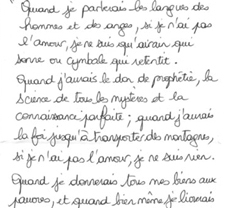 Quand je parlerais les langues des
hommes et des anges, si je n'ai pas
l'amour, je ne suis qu'airain qui
sonne ou cymbale qui retentit.
Quand j'aurais le don de prophétie, la
science de tous les mystères et la
connaissance parfaite ; quand j'aurais
la foi jusqu'à transporter des montagnes,
si je n'ai pas l'amour, je ne suis rien.
Quand je donnerais tous mes biens aux
pauvres, et quand bien même je livrerais